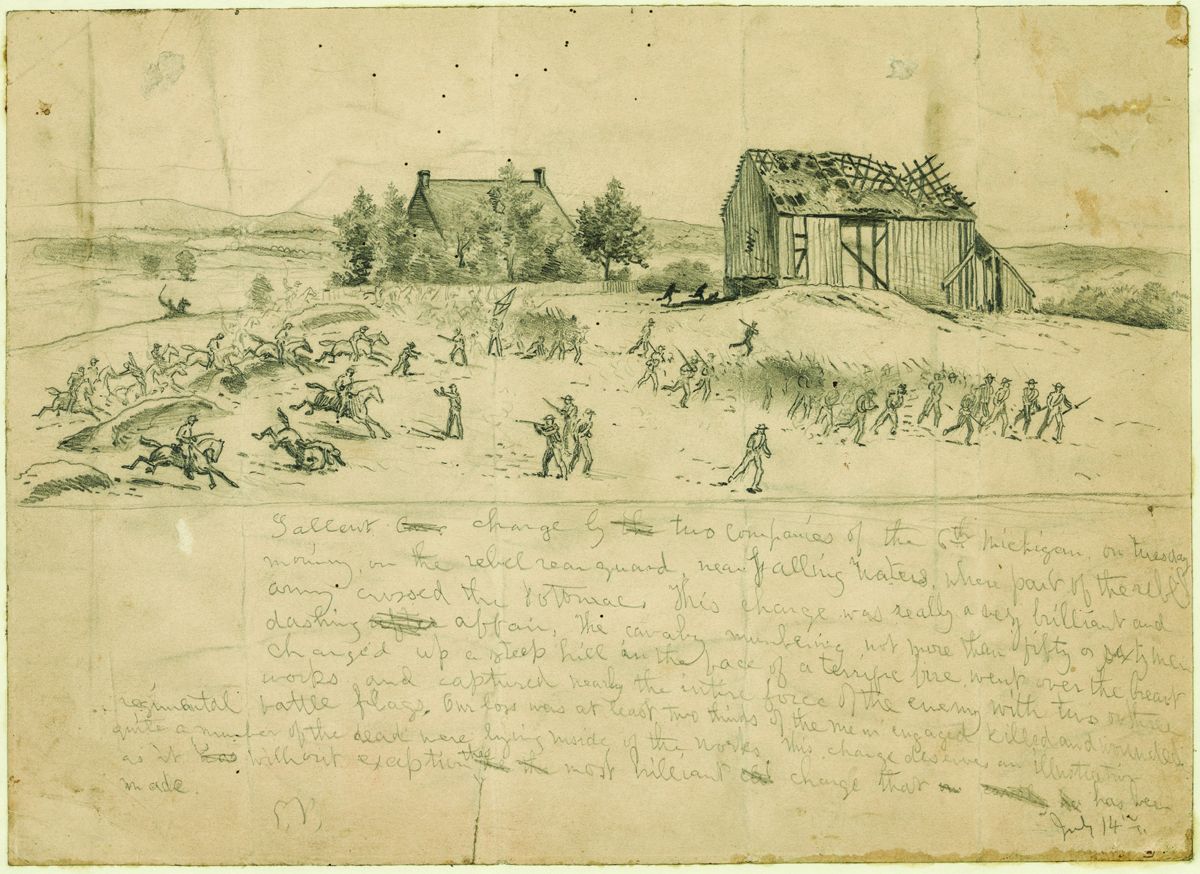 Gallent charge by two companies of the 6th Michigan, on tuesday
morning, on the rebel rear guard, near Falling Waters, where part of the rebel
army crossed the Potomac. This charge was really a very brilliant and
dashing affair, The cavalry numbering not more than fifty or sixty men
charged up a steep hill in the face of a terrific fire, went over the breast
works and captured nearly the intire force of the enemy with two or three
regimental battle flags. Our loss was at least two thirds of the men engaged killed and wounded.
quite a number of the dead were lying inside of the works, this charge deserves an illustration
as it without exception the most brilliant charge that has been
made.
July 14th